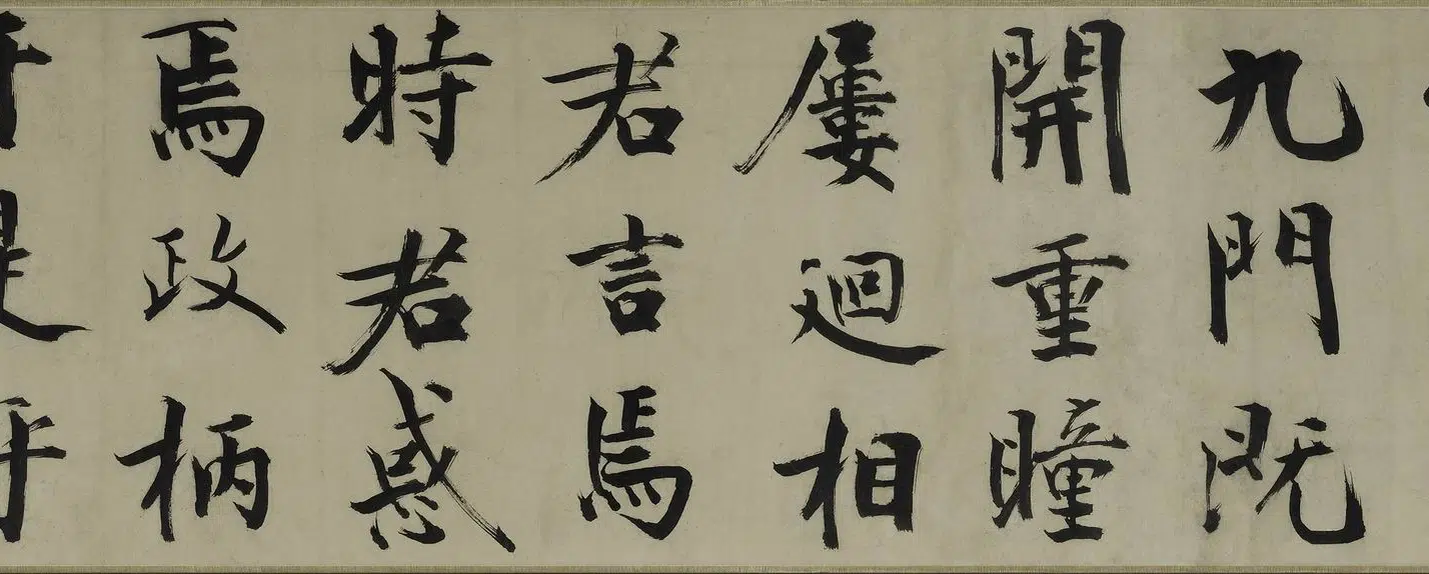 九門既
開重瞳
屢迴相
君言焉
時君惑
焉政柄